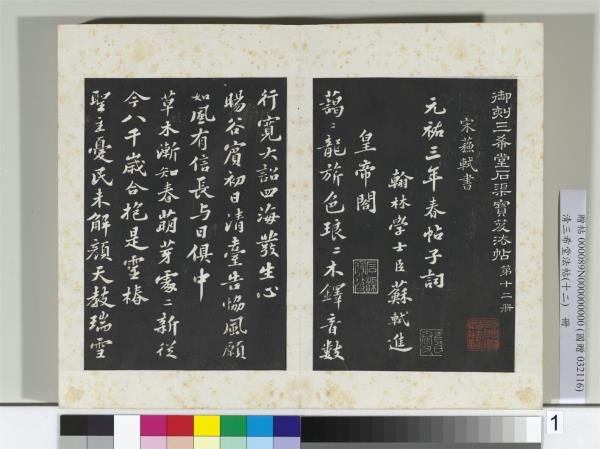 御刻三希堂石渠寶笈法帖第十二冊
宋蘇軾書
元祐三年春帖子詞
翰林學士臣蘇軾進
皇帝閣
藹〻龍旂色琅〻木鐸音數
行寬大詔四海發生心
暘谷賓初日清臺告協風願
如風有信長與日俱中
草木漸知春萌芽處〻新從
今八千歲合抱是靈椿
聖主憂民未解顏天教瑞雪
贈帖 000089N000000000 (國贈 032116)
清三希堂法帖(十二) 冊
1